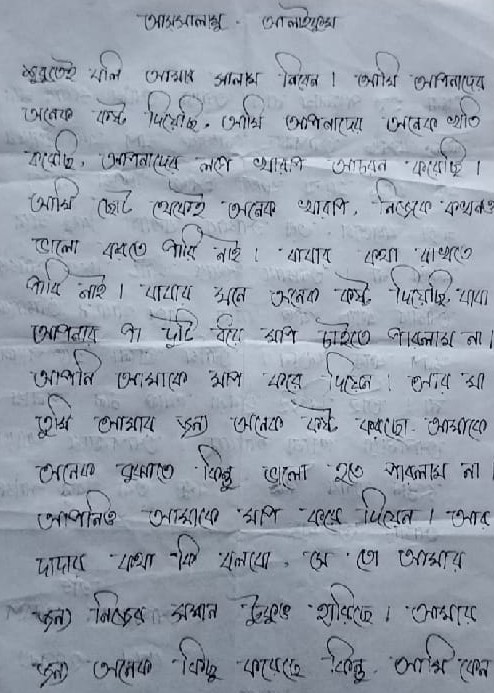 আসসালামু - আলাইকুম
শুরুতেই বলি আমার সালাম নিবেন। আমি আপনাদের
অনেক কষ্ট দিয়েছি, আমি আপনাদের অনেক খতি
করেছি, আপনাদের সাথে খারাপ আচরন করেছি।
আমি ছোট থেকেই অনেক খারাপ, নিজেকে কখনও
ভালো করতে পারি নাই। বাবার কথা রাখতে
পারি নাই। বাবার মনে অনেক কষ্ট দিয়েছি, বাবা
আপনার পা দুটি ধরে মাপ চাইতে পারলাম না।
আপনি আমাকে মাপ করে দিয়েন। আর মা
তুমি আমার জন্য অনেক কষ্ট করছো আমাকে
অনেক বুঝাতে কিন্তু ভালো হতে পারলাম না।
আপনিও আমাকে মাপ করে দিয়েন। আর
দাদার কথা কি বলবো, সে তো আমার
জন্য নিজের সম্মান টুকুও হারিছে। আমার
জন্য অনেক কিছু করেছে কিন্তু আমি কেন